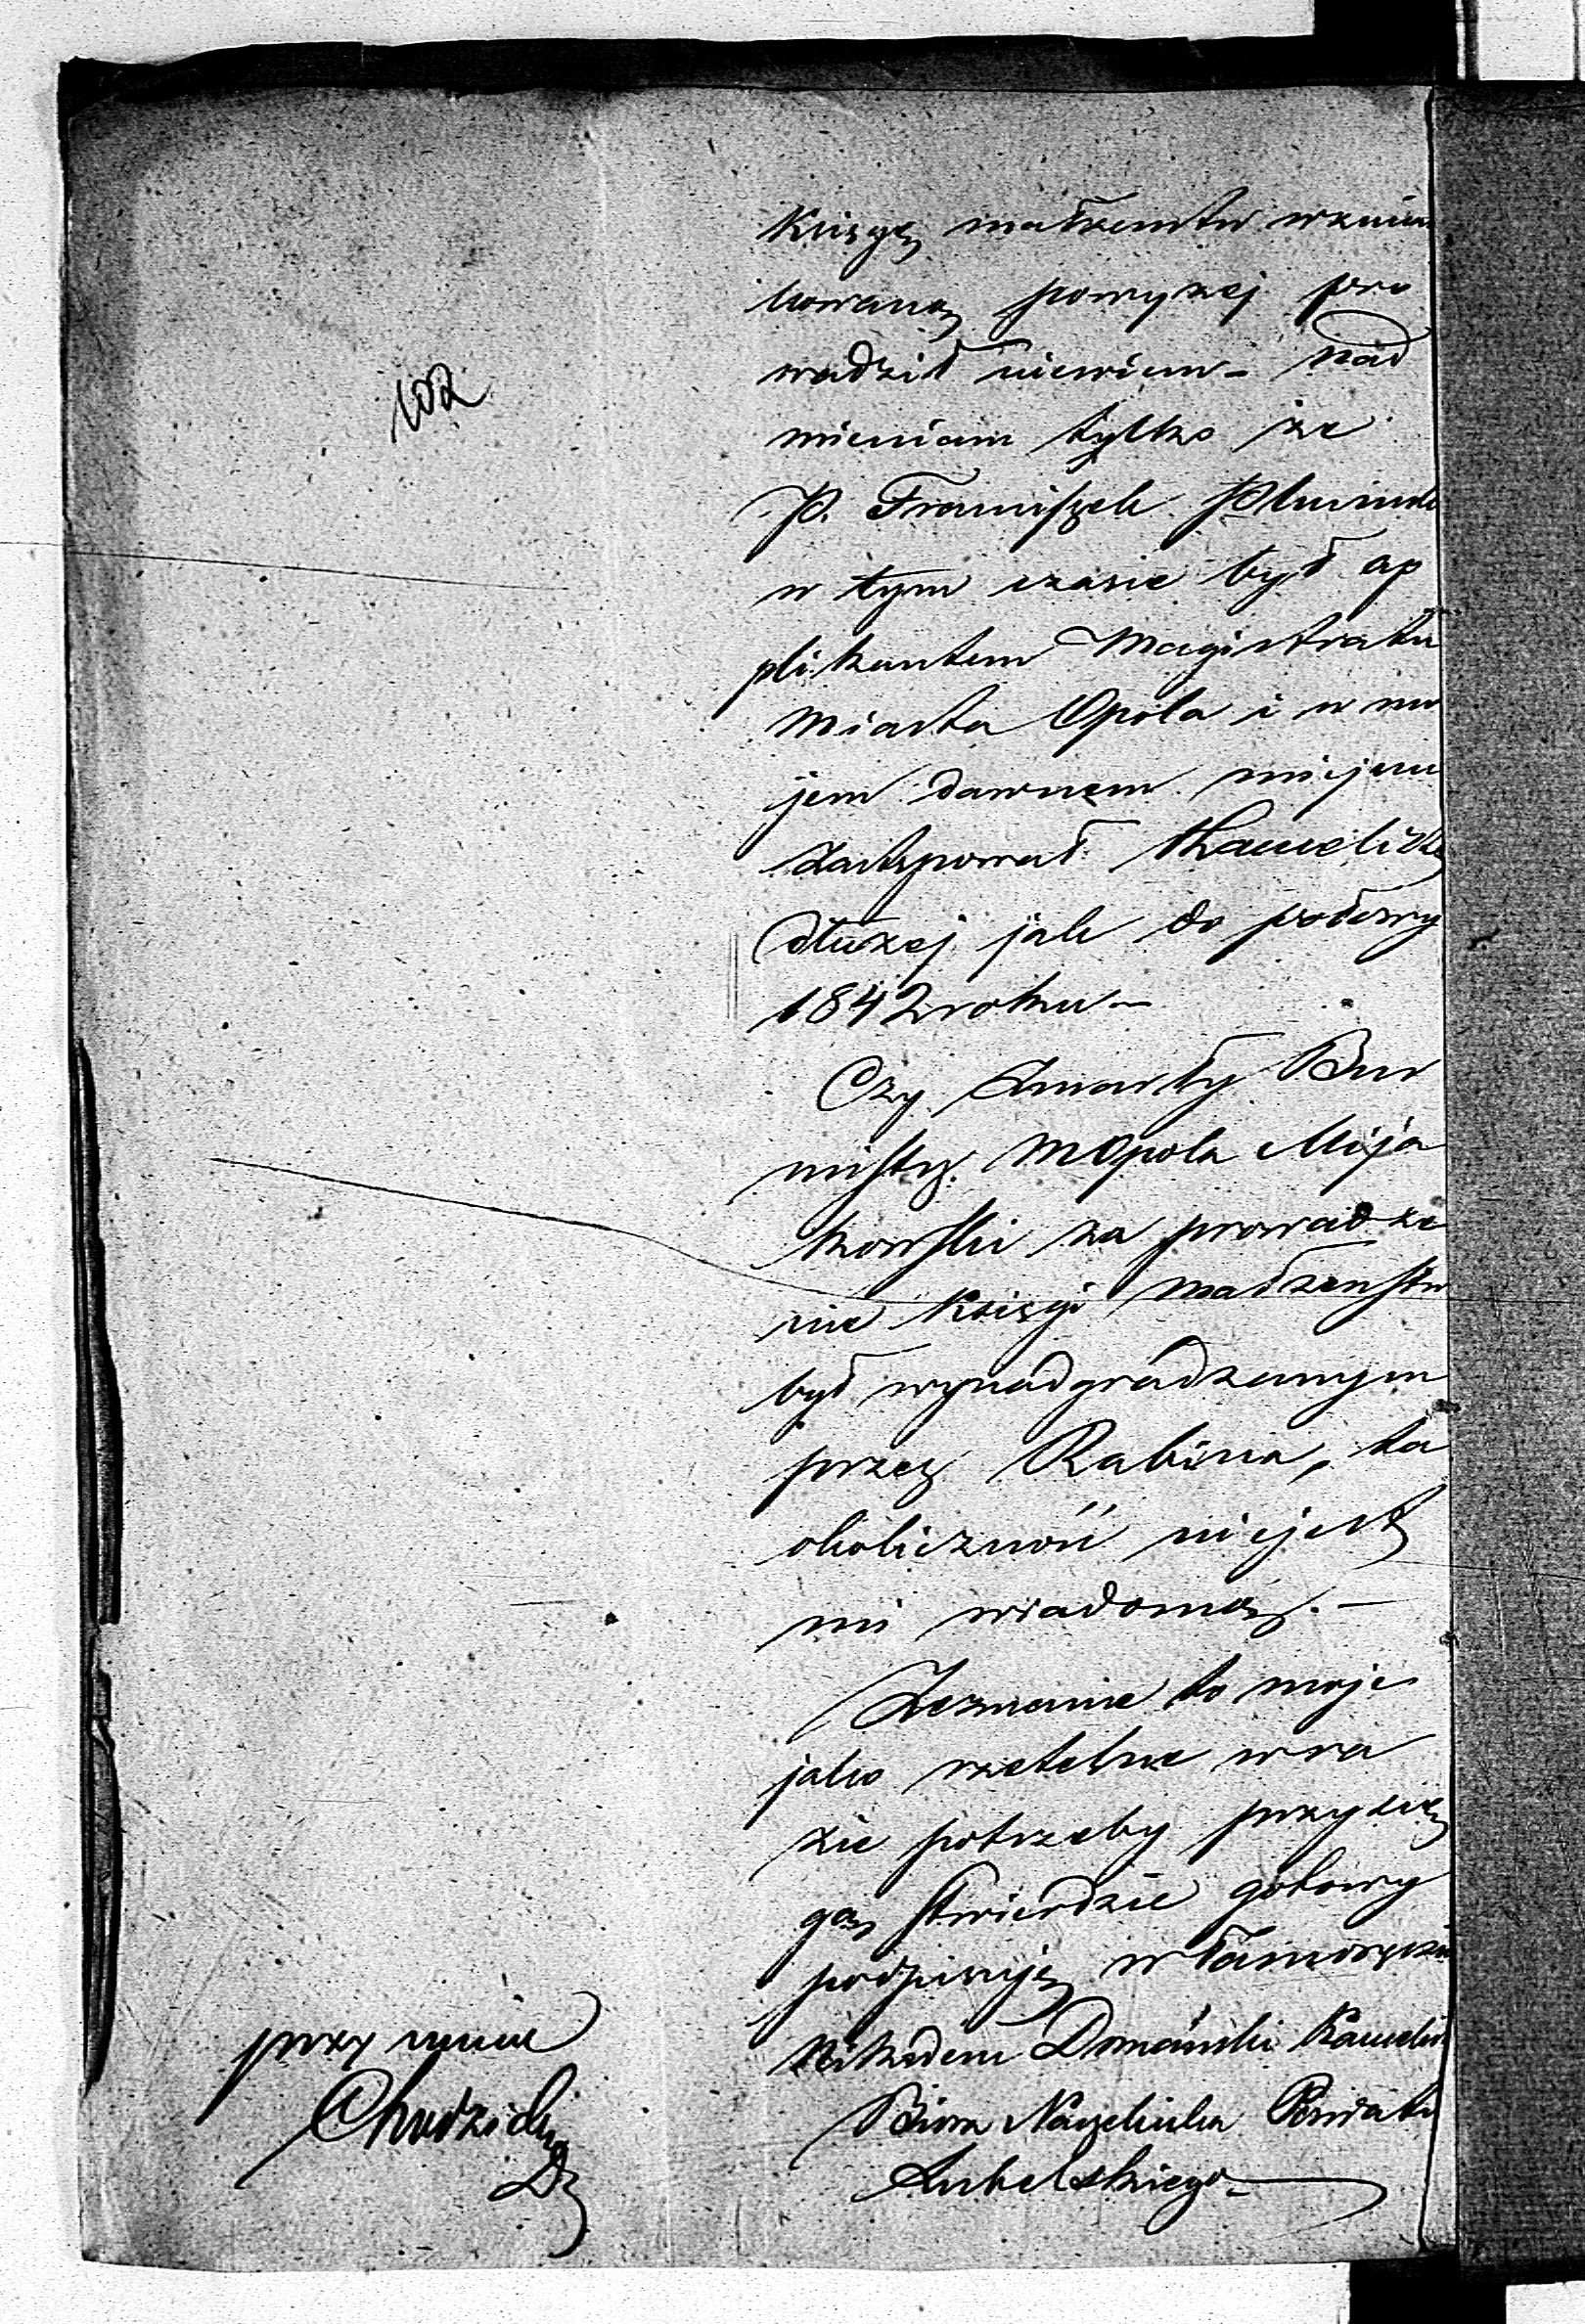 102
Księgę małżeństw wzmian
kowaną powyżej pro
wadził niewiem – nad
mieniam tylko że
P. Franciszek
w tym czasie był ap
plikantem Magistratu
Miasta Opola i w mo
jem dawnem miejscu
zastępował Kancelistę
dłużej jak do połowy
1842 roku –
Czy Zmarły Bur
mistrz M Opola Mija
kowski za prowadze
nie Księgi małżeństw
był wynadgradzanym
przez Rabina, ta
okoliczność niejest
mi wiadomą. –
Zeznanie to moje
jako rzetelne w ra
zie potrzeby przysię
gą stwierdzić gotowy
podpisuję własnoręcznie
Nikodem Domański Kancelista
Biura Naczelnika Powiatu
Lubelskiego –
przy mnie
Chudzicki